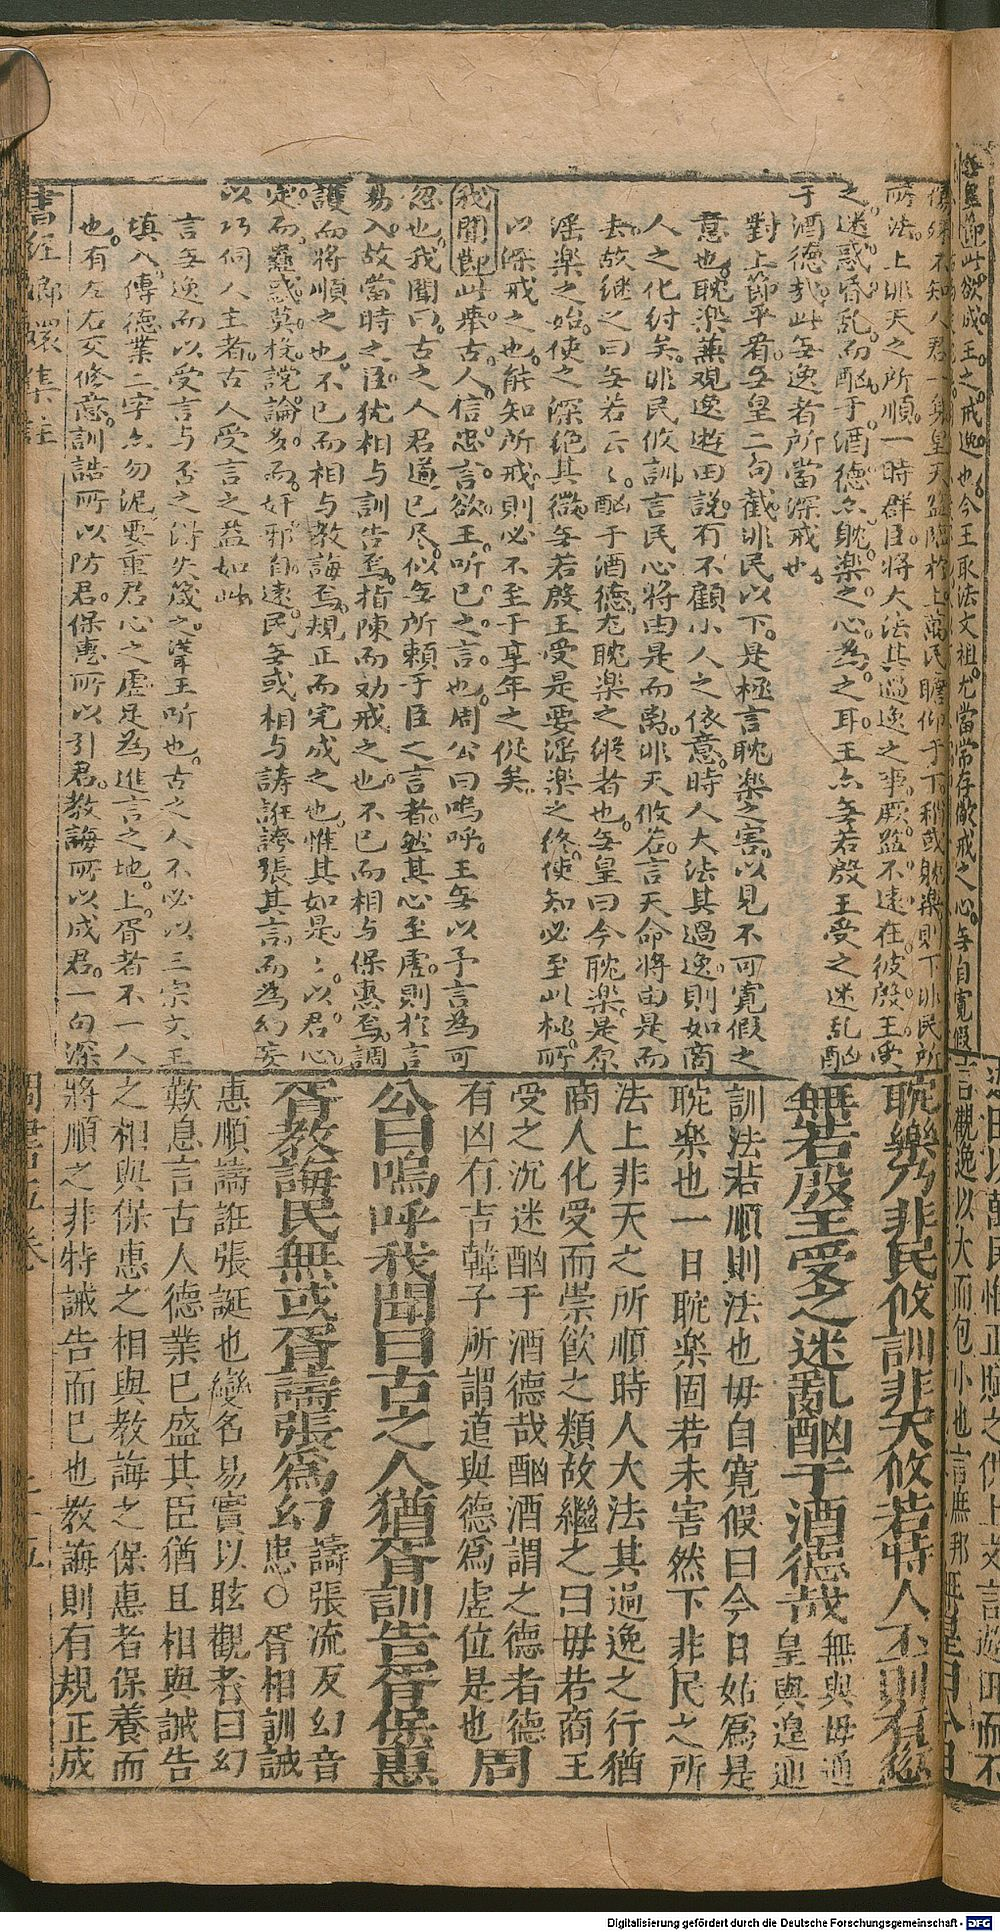 所法上非天之所順一時群臣將大法其過逸之事厥愆不遠在彼殷王受
之迷惑昏乱而酗于酒德亦耽楽之心為之耳王亦毎若殷王受之迷乱酗
于酒德哉此毎逸者所當深戒也
對上節平看毎皇二句截非民以下是極言耽楽之害以見不可寛假之
意也耽楽蒸观逸遊田説有不顧小人之依意時人大法其過逸則如商
人之化紂矣非民攸訓言民心將由是而离非天攸若言天命將由是而
去故継之曰毎若云々酗于酒德尤耽楽之縱者也毎皇曰今耽楽是原
淫楽之始使之深绝其微毎若殷王受是要淫楽之終使知必至此極所
以深戒之也能知所戒則必不至于享年之促矣
我聞節此举古人信忠言欲王听己之言也周公曰嗚呼王毎以予言為可
忽也我聞曰古之人君道已尽似毎所頼于臣之言者然其心至虚則於言
易入故當時之臣犹相与訓告焉指陳而劝戒之也不已而相与保惠焉調
護而將順之也不已而相与教誨焉規正而完成之也惟其如是々以君心
定而蠱惑莫投説論多而奸邪自遠民毎或相与譸誑誇張其言而為幻妄
以巧伺人主者古人受言之益如此
言毎逸而以受言与否之得失箴之漢王听也古之人不必以三宗文王
填入傳德業二字亦勿泥要重君心之虚足為進言之地上胥者不一人
也有左右交修意訓誥所以防君保惠所以引君教誨所以成君一句深
耽樂乃非民攸訓非天攸若時人丕則有愆
無若殷王受之迷亂酗于酒德哉 無與毋通皇與遑通
訓法若順則法也毋自寛假曰今日姑爲是
耽楽也一日耽楽固若未害然下非民之所
法上非天之所順時人大法其過逸之行猶
商人化受而崇飲之類故繼之曰毋若商王
受之沉迷酗于酒德哉酗酒謂之德者德
有凶有吉韓子所謂道與德爲虚位是也 周
公曰嗚呼我聞曰古之人猶胥訓告胥保惠
胥教誨民無或胥譸張爲幻 譸張流反幻音患○胥相訓誡
惠順譸誑張誕也變名易實以眩觀者曰幻
歎息言古人德業已盛其臣猶且相與誡告
之相與保惠之相與教誨之保惠者保養而
將順之非特誡告而已也教誨則有規正成
書經 嬛集註
周書
Digitalisierung gefördert durch die Deutsche Forschungsgemeinschaft - DFG